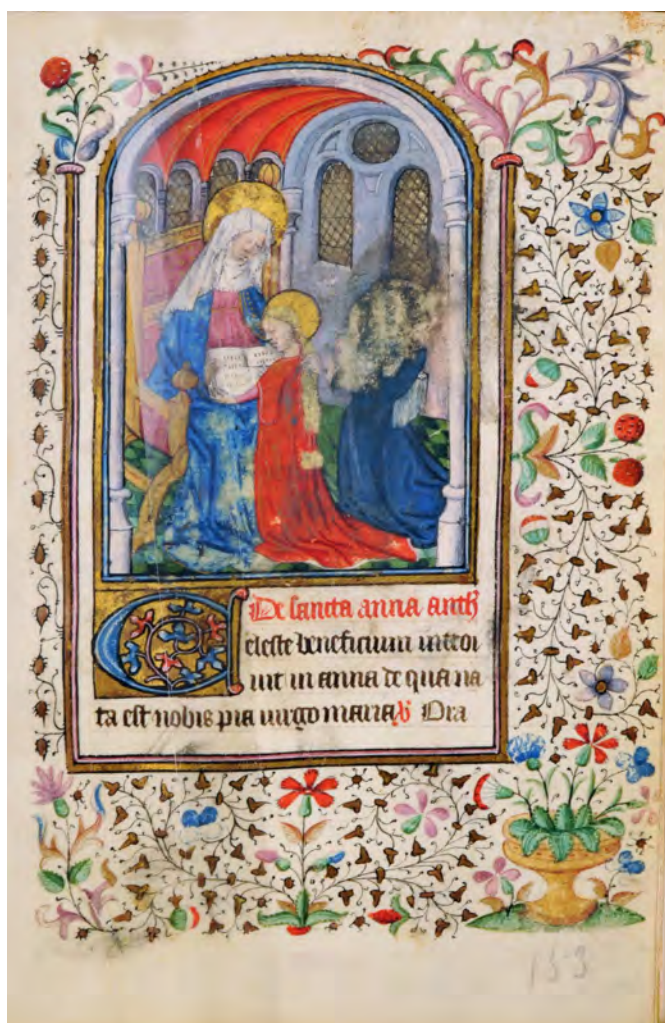 De sancta anna anth
Celeste beneficium introi
uit in anna de qua na
ta est nobis pia uirgo maria v Ora
153